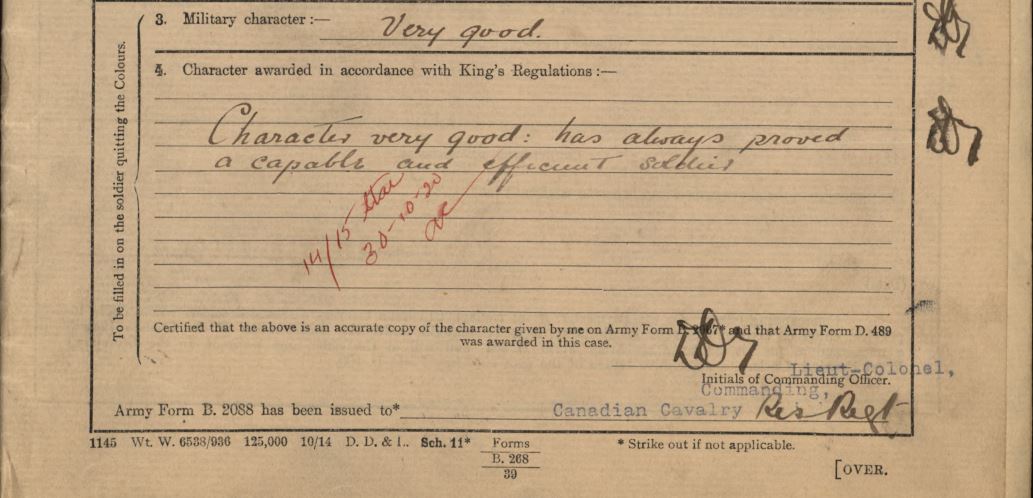 To be filled in on the soldier quitting the Colours.
3. Military character :—
Very good.
4. Character awarded in accordance with King's Regulations :—
Character very good: has always proved
a capable and efficient soldier
14/15 Star
30-10-20
Certified that the above is an accurate copy of the character given by me on Army Form B. 2067* and that Army Form D. 489
was awarded in this case.
Lieut-Colonel,
Initials of Commanding Officer.
Commanding,
Army Form B. 2088 has been issued to*
Canadian Cavalry Res Regt
1145 Wt. W. 6538/936 125,000 10/14 D. D. & L. Sch. 11* Forms
B. 268
39
* Strike out if not applicable.
[OVER.